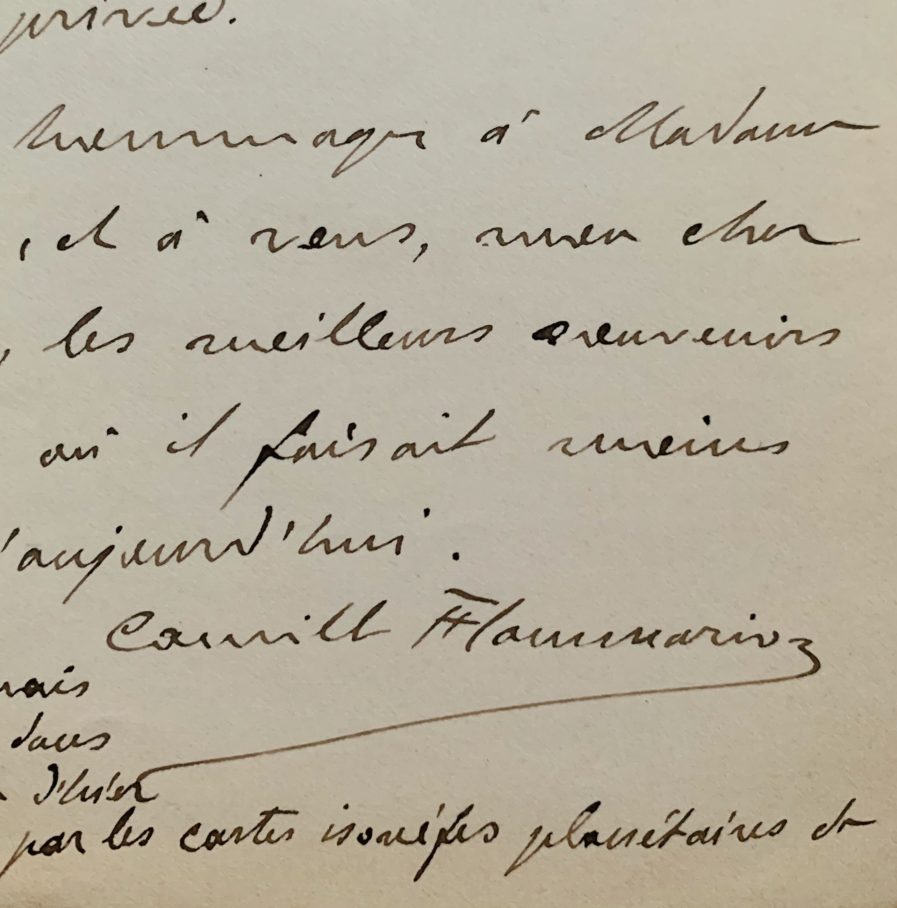 privée.
hommages à Madame
, et à vous, mon cher
, les meilleurs souvenirs
où il faisait moins
'aujourd'hui.
Camille Flammarion
mais
dans
d'hier
par les cartes planétaires et